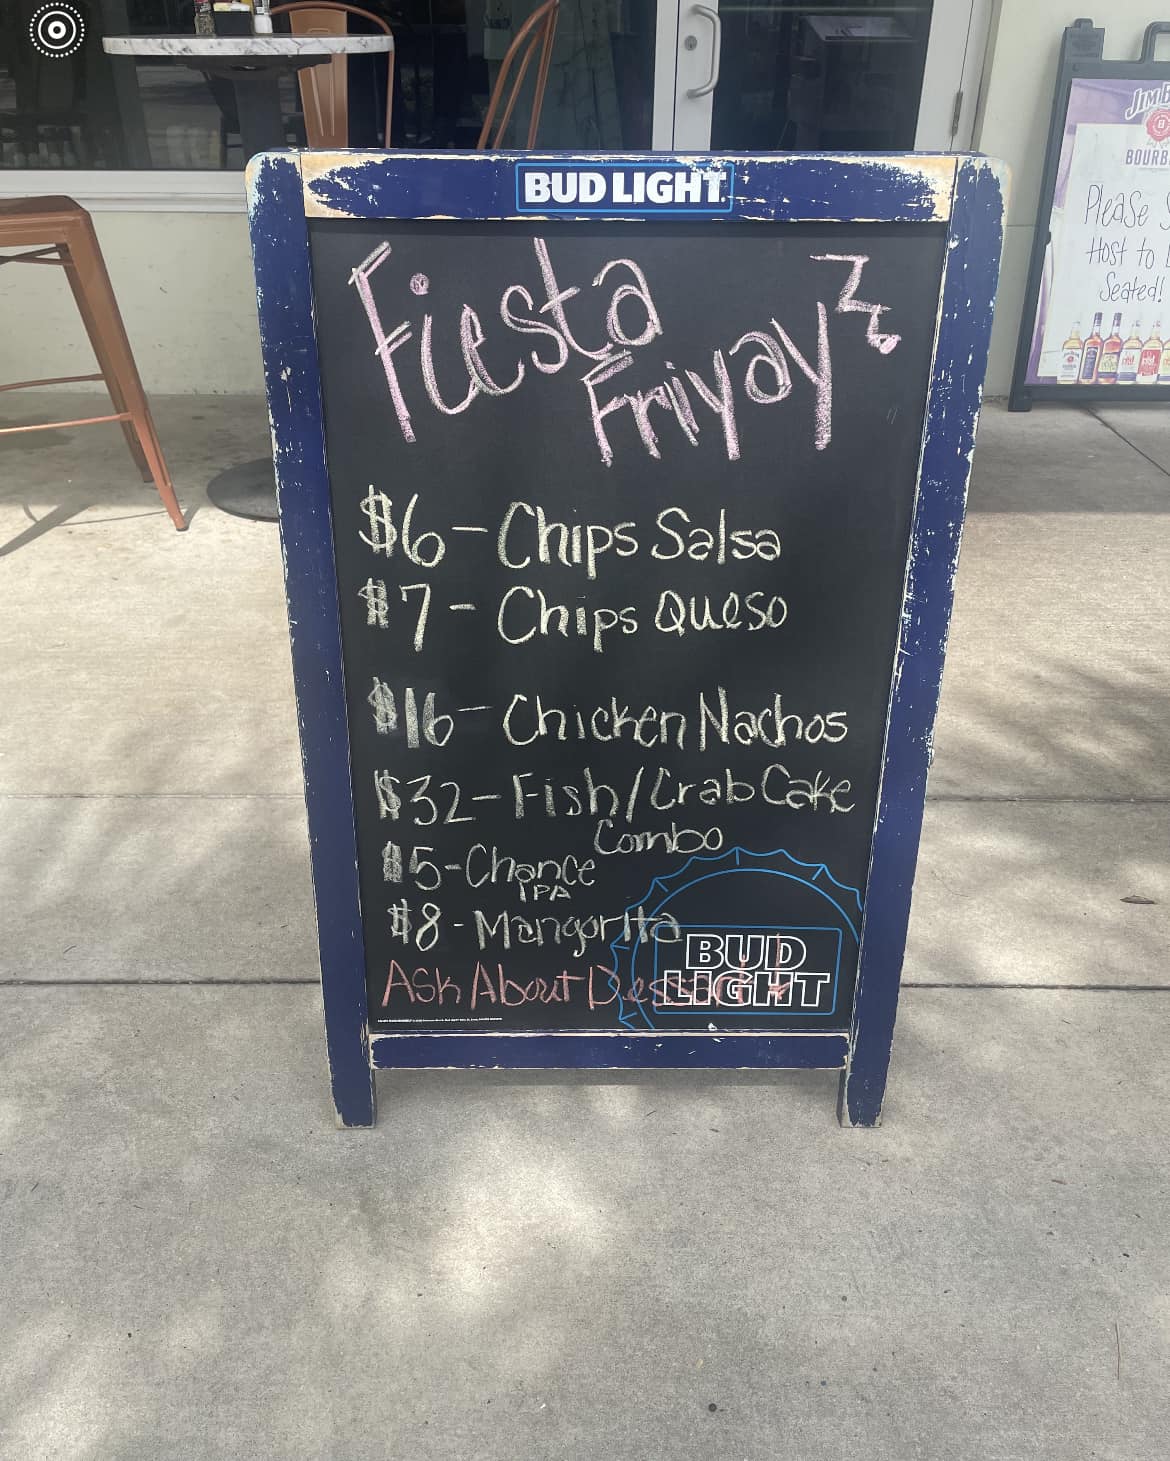 BUD LIGHT.
Fiesta
Friyay
$6 - Chips Salsa
$7 - Chips Queso
$16 - Chicken Nachos
$32 - Fish/Crab Cake
Combo
$5 - Chance
IPA
$8 - Mangorita
Ask About Dessert
BUD
LIGHT
JIM B
BOURB
Please S
Host to
Seated!